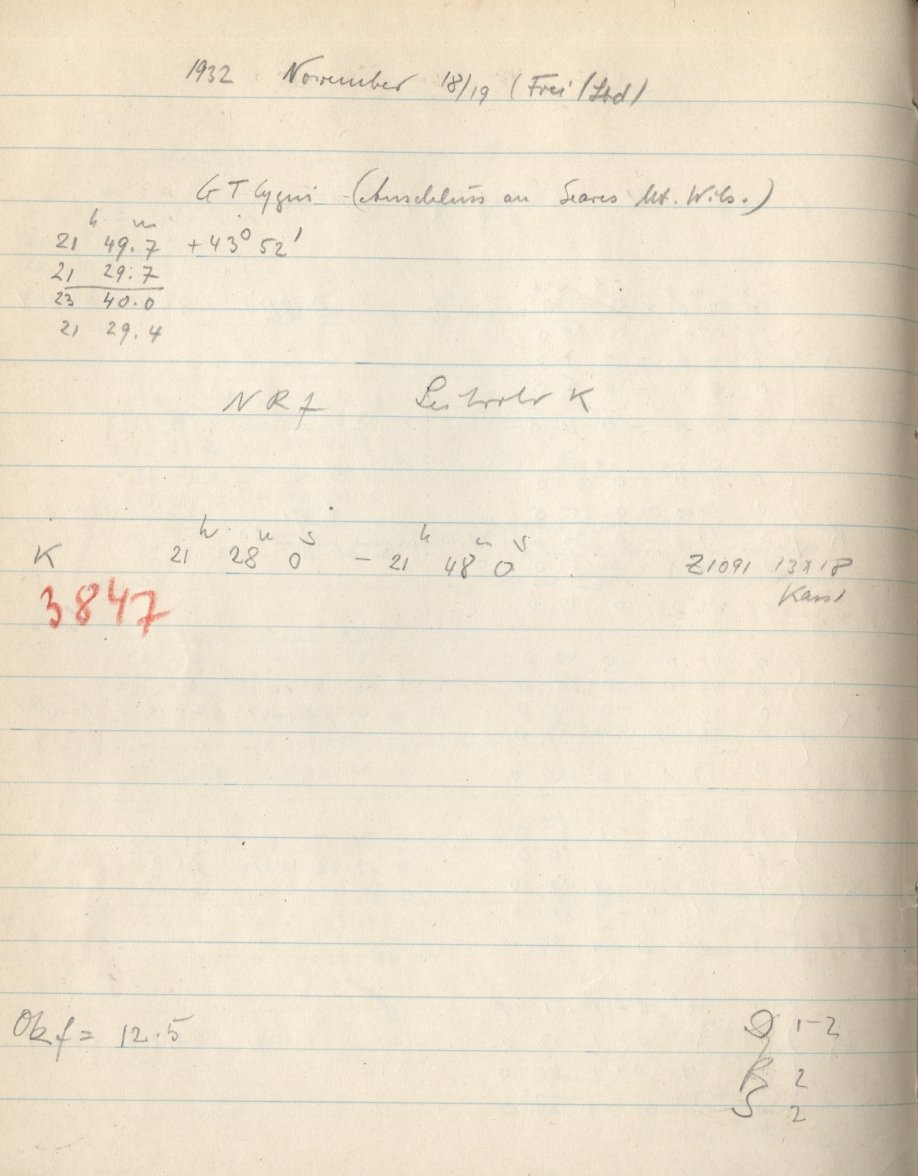 1932 November 18/19 (Frei/Sbd)
GT Cygni (Anschluss an Seares Mt. Wils.)
21 h 49.7 m +43° 52'
21 29.7
23 40.0
21 29.4
NRf Leitrohr K
K 21 h 28 m 0 s - 21 h 48 m 0 s Z1091 13x18
3847
Okf = 12.5
1-2
R 2
S 2